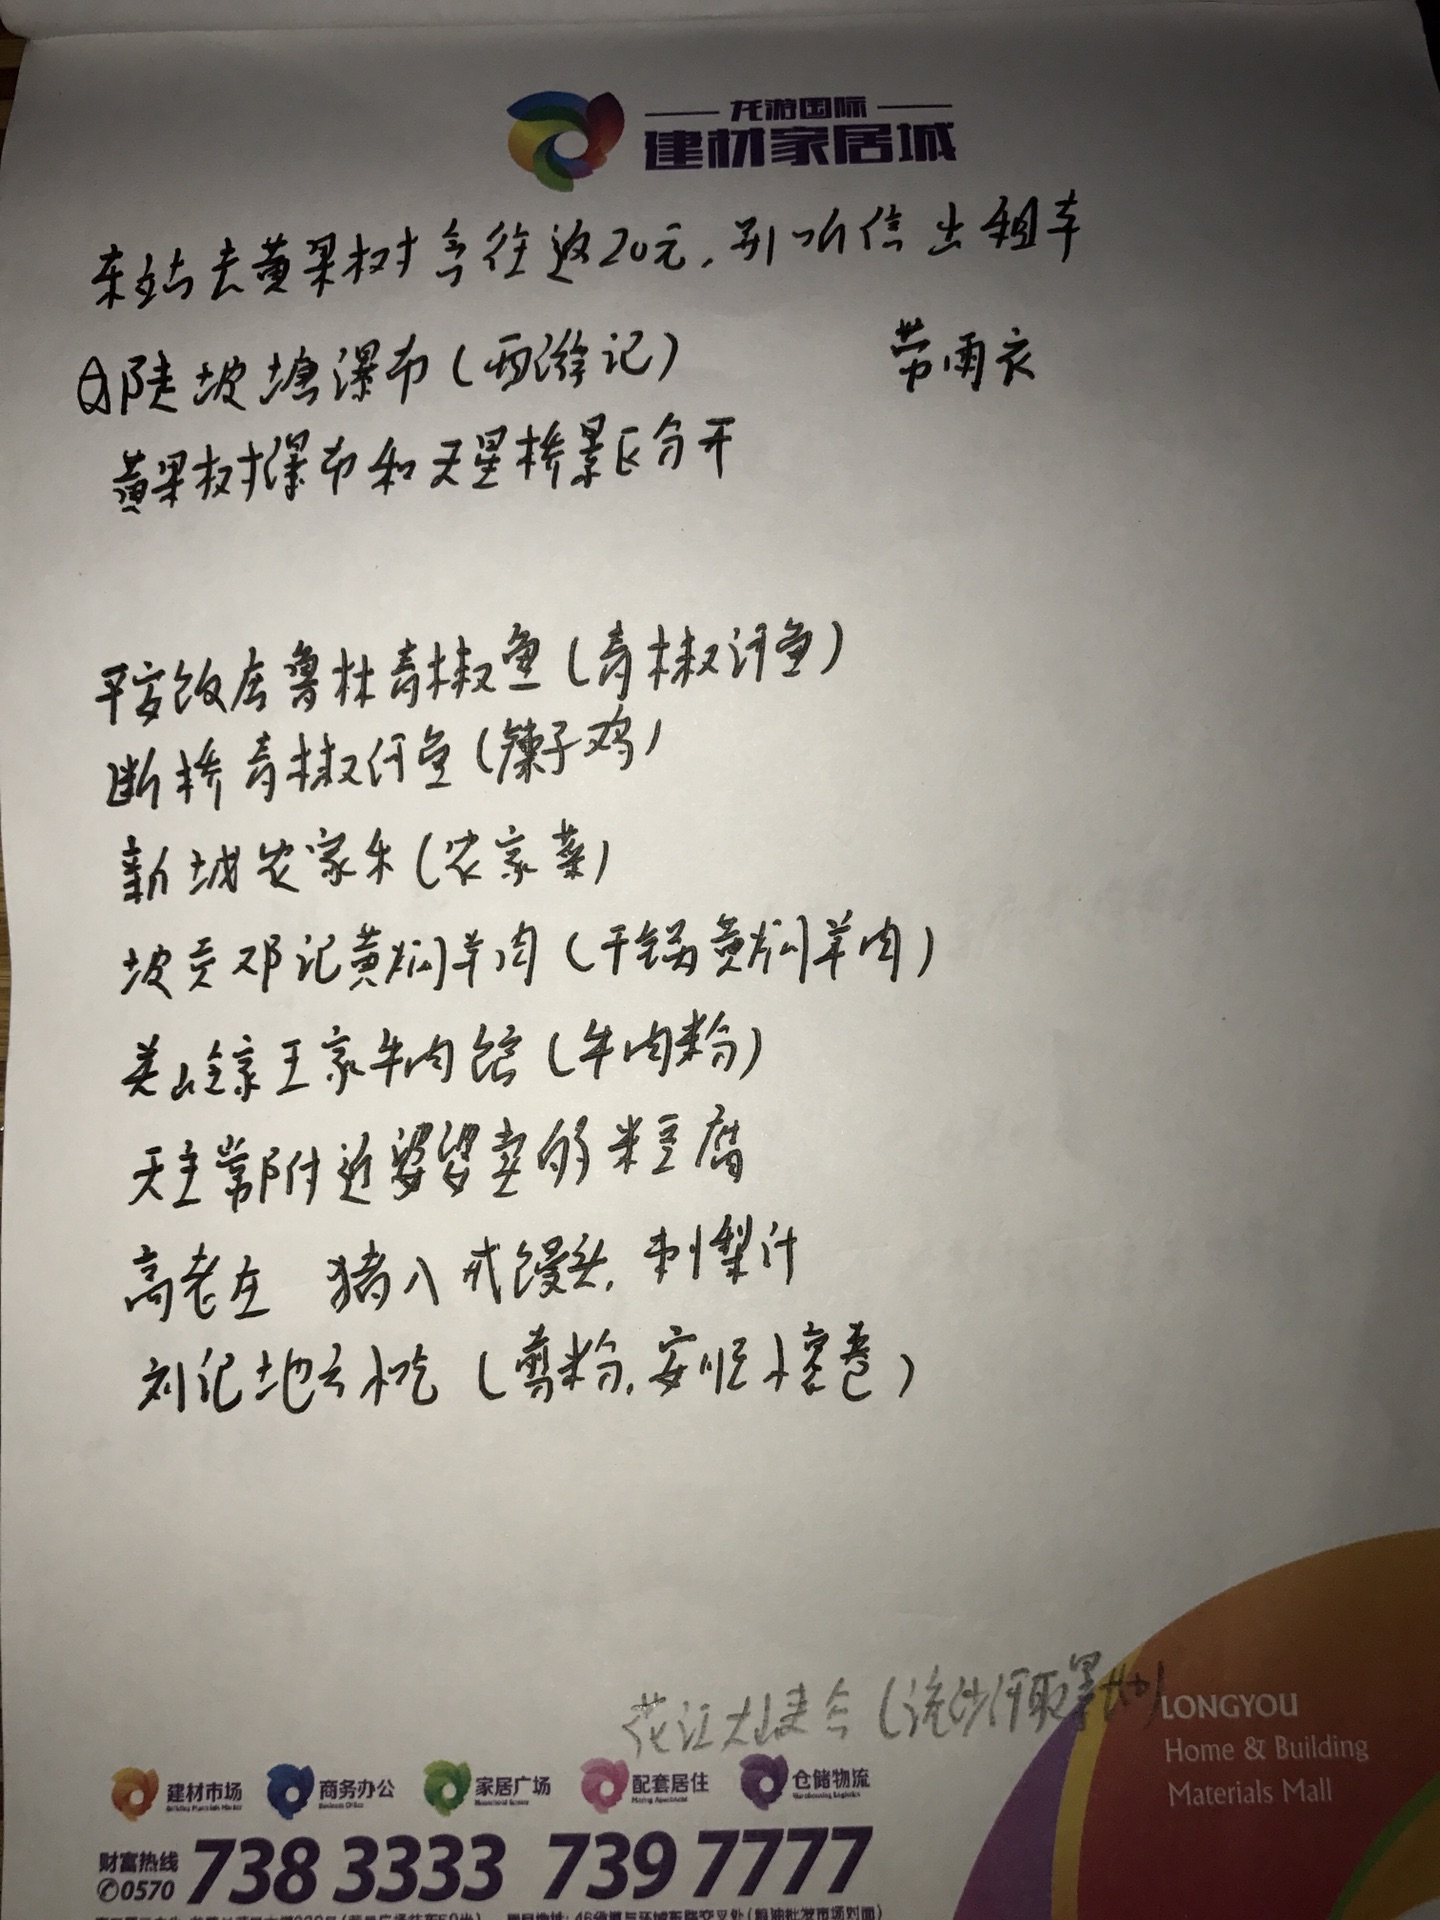 龙游国际
建材家居城
东站去黄果树含往返20元,别听信出租车
陡坡塘瀑布(西游记) 带雨衣
黄果树瀑布和天星桥景区分开
平安饭店鲁林青椒鱼(青椒河鱼)
断桥青椒河鱼(辣子鸡)
新城农家乐(农家菜)
坡贡邓记黄焖羊肉(干锅黄焖羊肉)
王家牛肉馆(牛肉粉)
天主堂附近婆婆卖的米豆腐
高老庄 猪八戒馒头,刺梨汁
刘记地方小吃(剪粉,安顺小裹卷)
花江大峡谷(流沙河取景地)
LONGYOU
Home & Building
Materials Mall
建材市场 商务办公 家居广场 配套居住 仓储物流
财富热线
0570 738 3333 739 7777